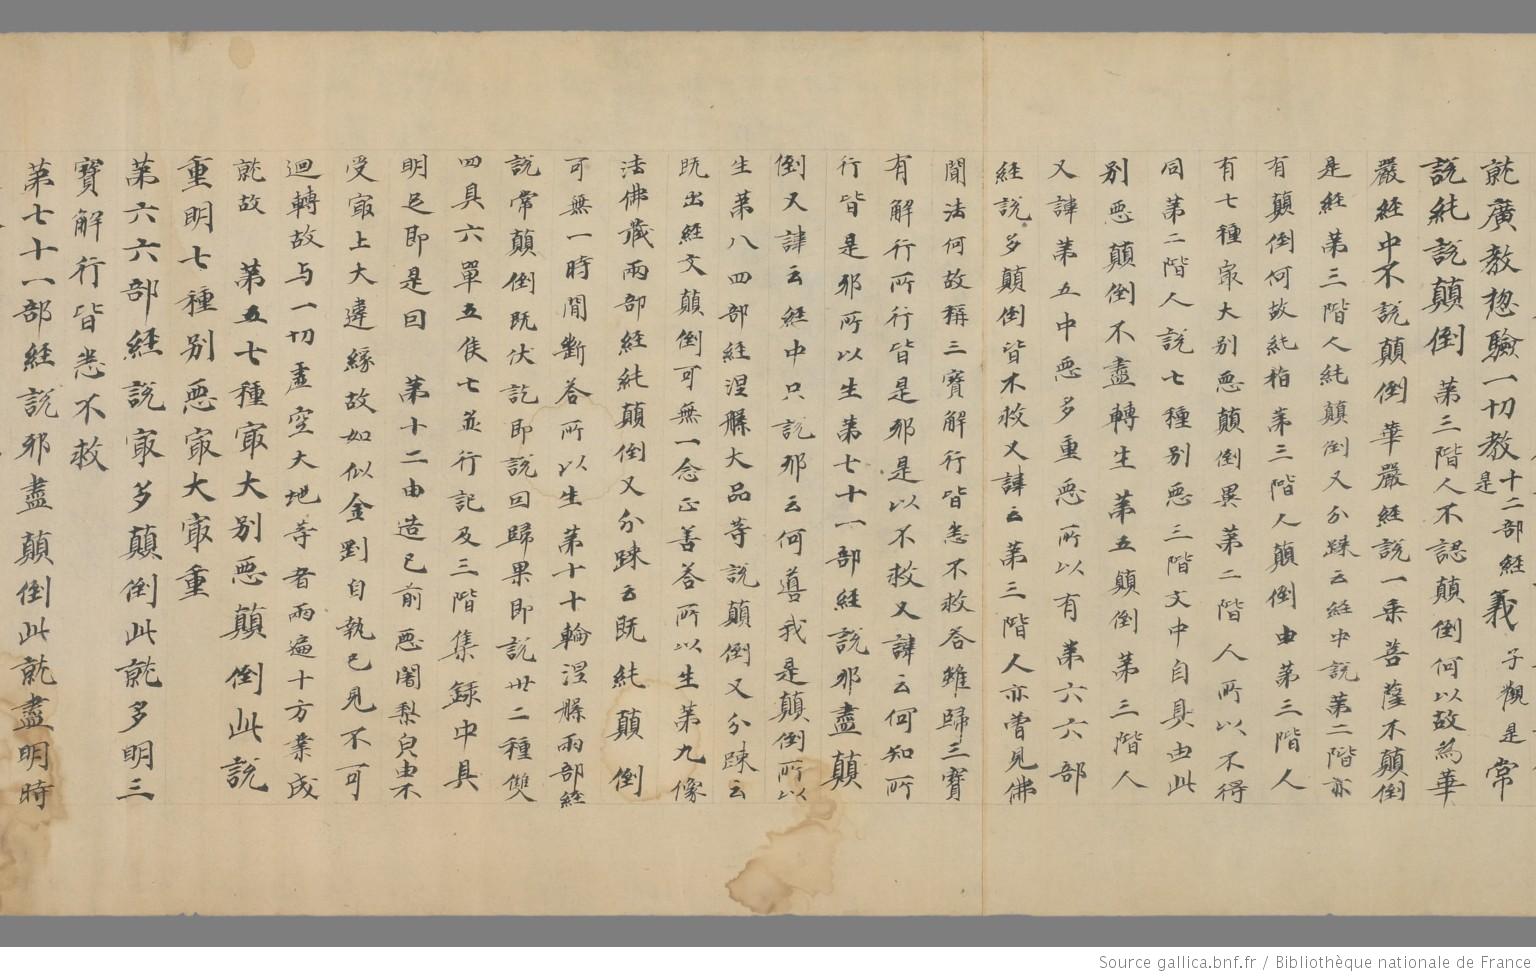 就廣教惣驗一切教十二部経是義子觀是常
說純說顛倒 第三階人不認顛倒何以故為華
嚴経中不說顛倒華嚴経說一乘菩薩不顛倒
是経第三階人純顛倒又分踈云経中說第二階亦
有顛倒何故純指第三階人顛倒由第三階人
有七種冣大別惡顛倒異第二階人所以不得
同第二階人說七種別惡三階文中自具由此
又諱第五中惡多重惡所以有第六六部
別惡顛倒不盡轉生第五顛倒第三階人
経說多顛倒皆不救又諱云第三階人亦曾見佛
聞法何故稱三寶解行皆悉不救荅雖歸三寶
有解行所行皆是邪是以不救又諱云何知所
行皆是邪所以生第七十一部経說邪盡顛
倒又諱云経中只說邪云何噵我是顛倒所以
生第八四部経涅槃大品等說顛倒又分踈云
既出経文顛倒可無一念正善荅所以生第九像
法佛藏兩部経純顛倒又分踈云既純顛倒
可無一時閒斷荅所以生第十十輪涅槃兩部経
說常顛倒既伏訖即說曰歸果即說卅二種雙
四具六單五侯七並行記及三階集録中具
明足即是曰 第十二由造已前惡闍梨
受冣上大違緣故如似金剛自執己見不可
迴轉故与一切虛空大地等者兩遍十方業成
就故 第五七種冣大別惡顛倒此說
重明七種別惡冣大冣重
第六六部経說冣多顛倒此就多明三
寶解行皆悉不救
第七十一部経說邪盡顛倒此就盡明時